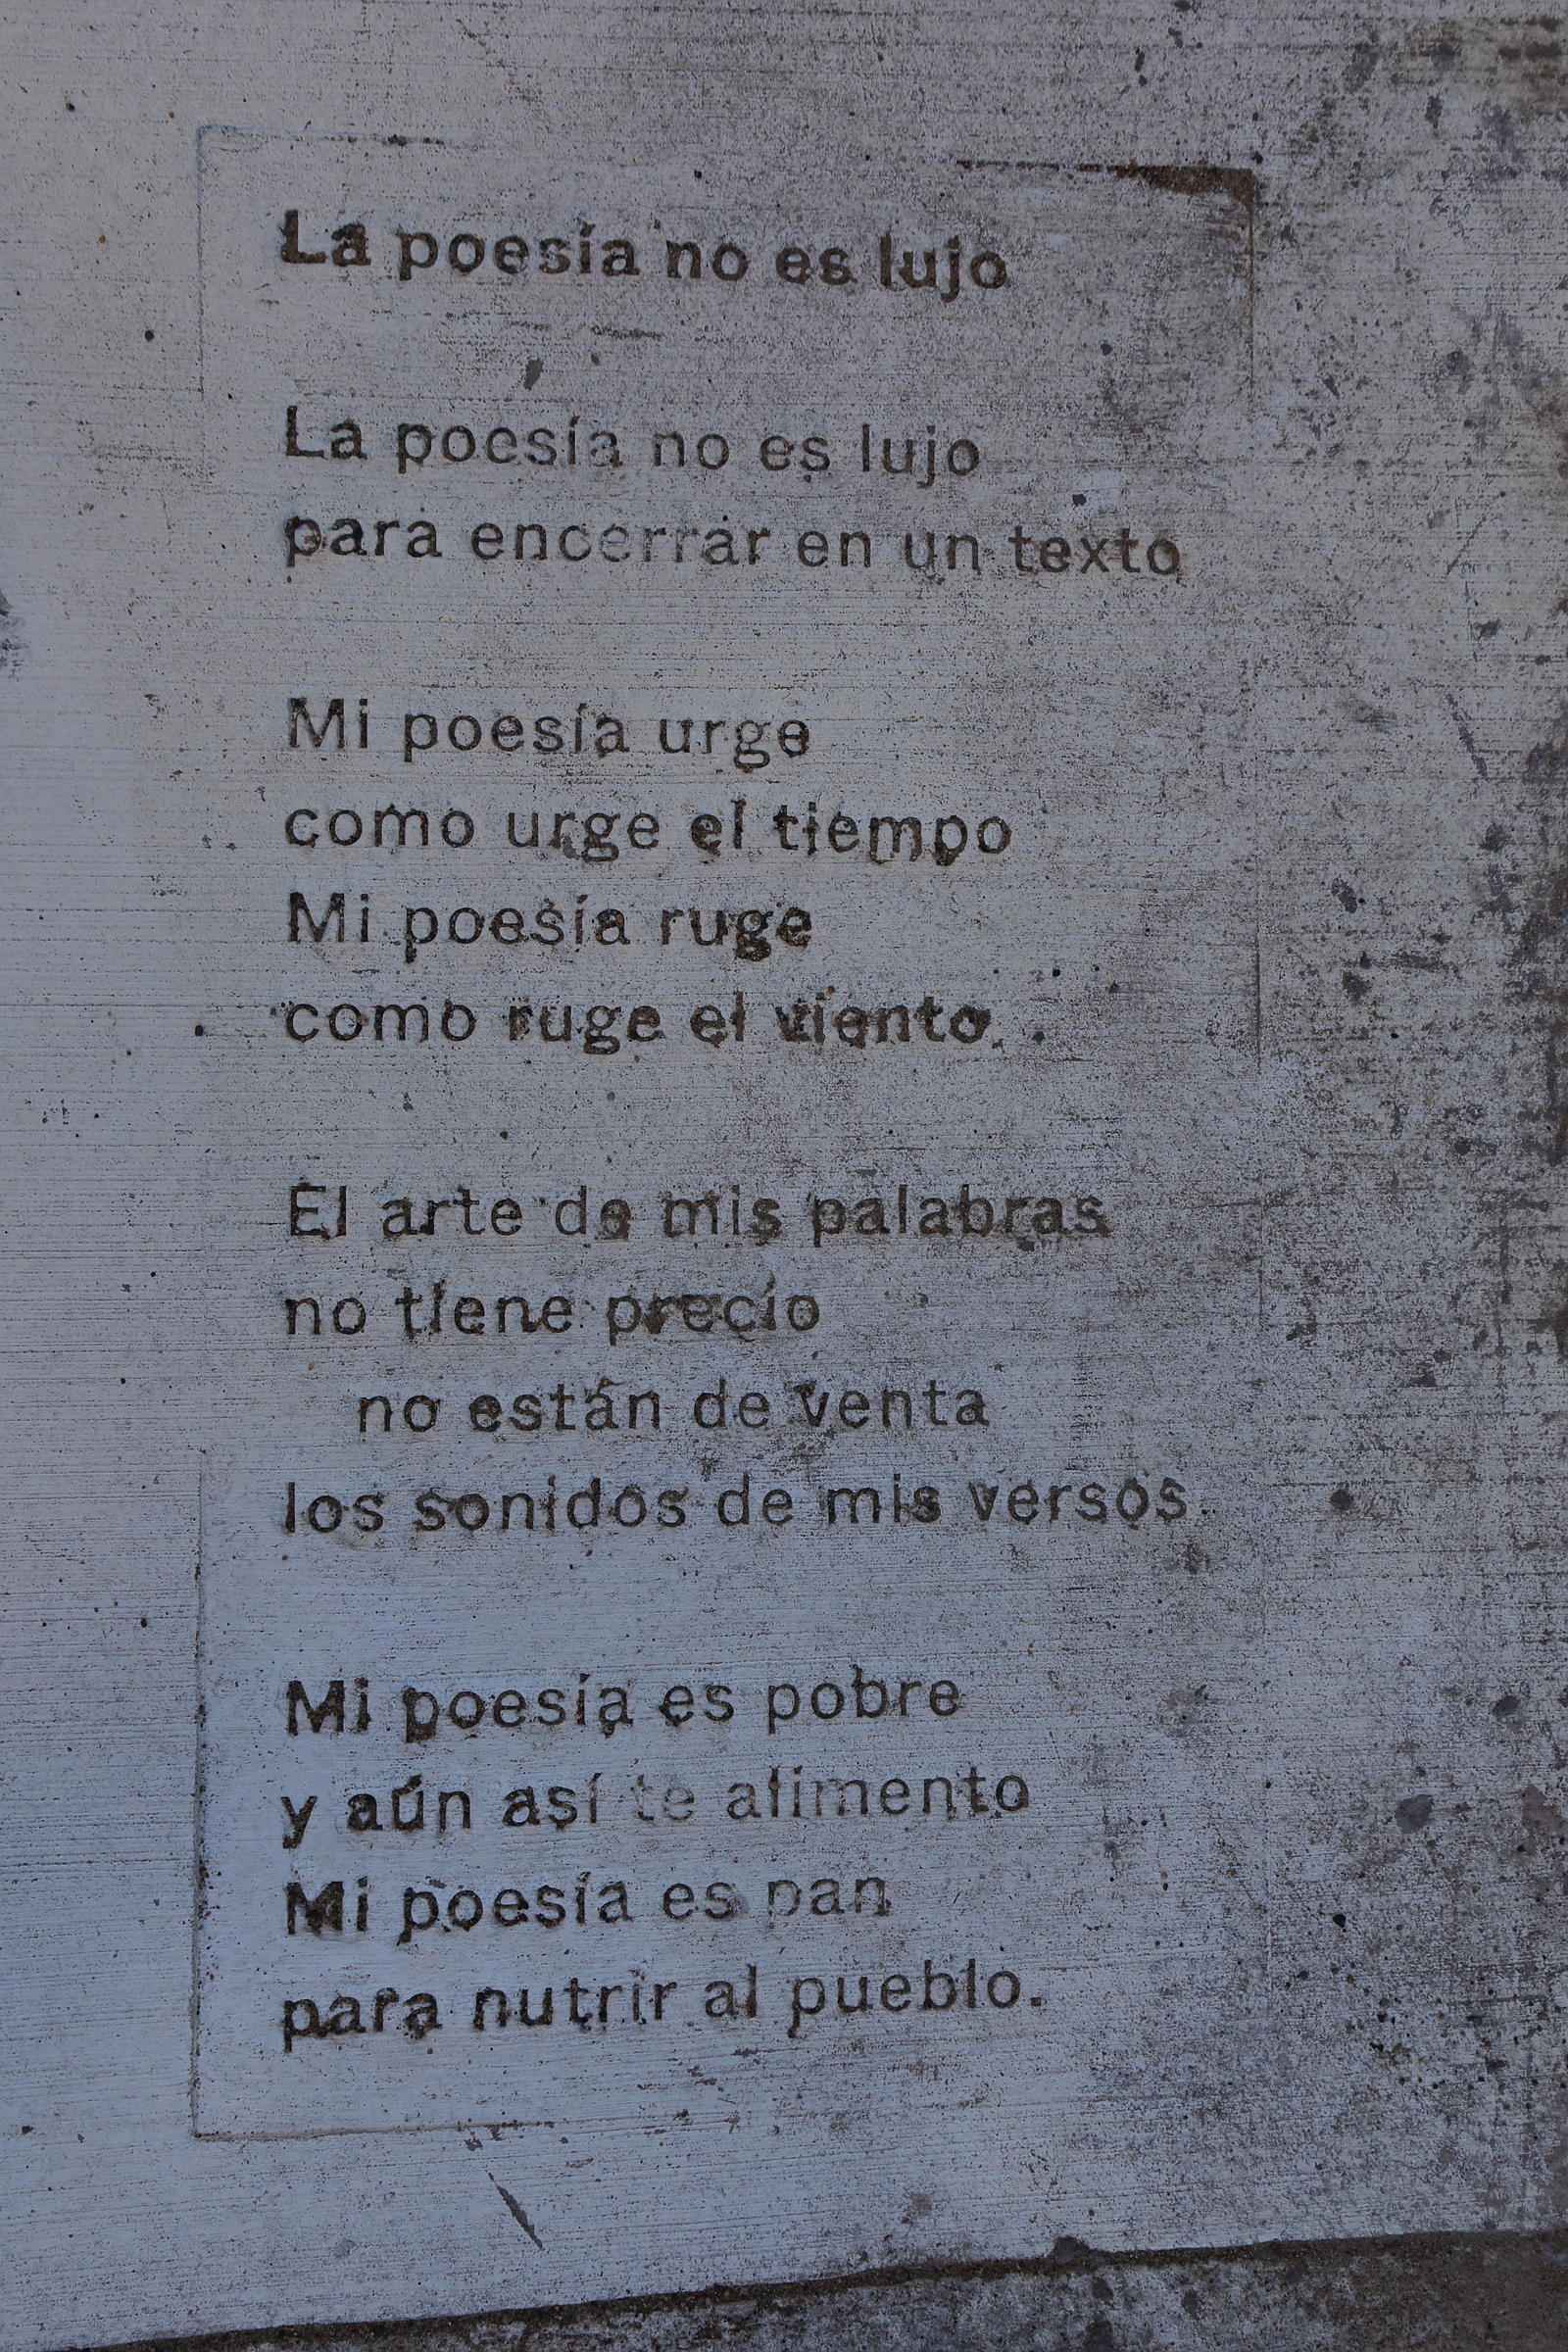 La poesía no es lujo
La poesía no es lujo
para encerrar en un texto
Mi poesía urge
como urge el tiempo
Mi poesía ruge
como ruge el viento
El arte de mis palabras
no tiene precio
no están de venta
los sonidos de mis versos
Mi poesía es pobre
y aún así te alimento
Mi poesía es pan
para nutrir al pueblo.